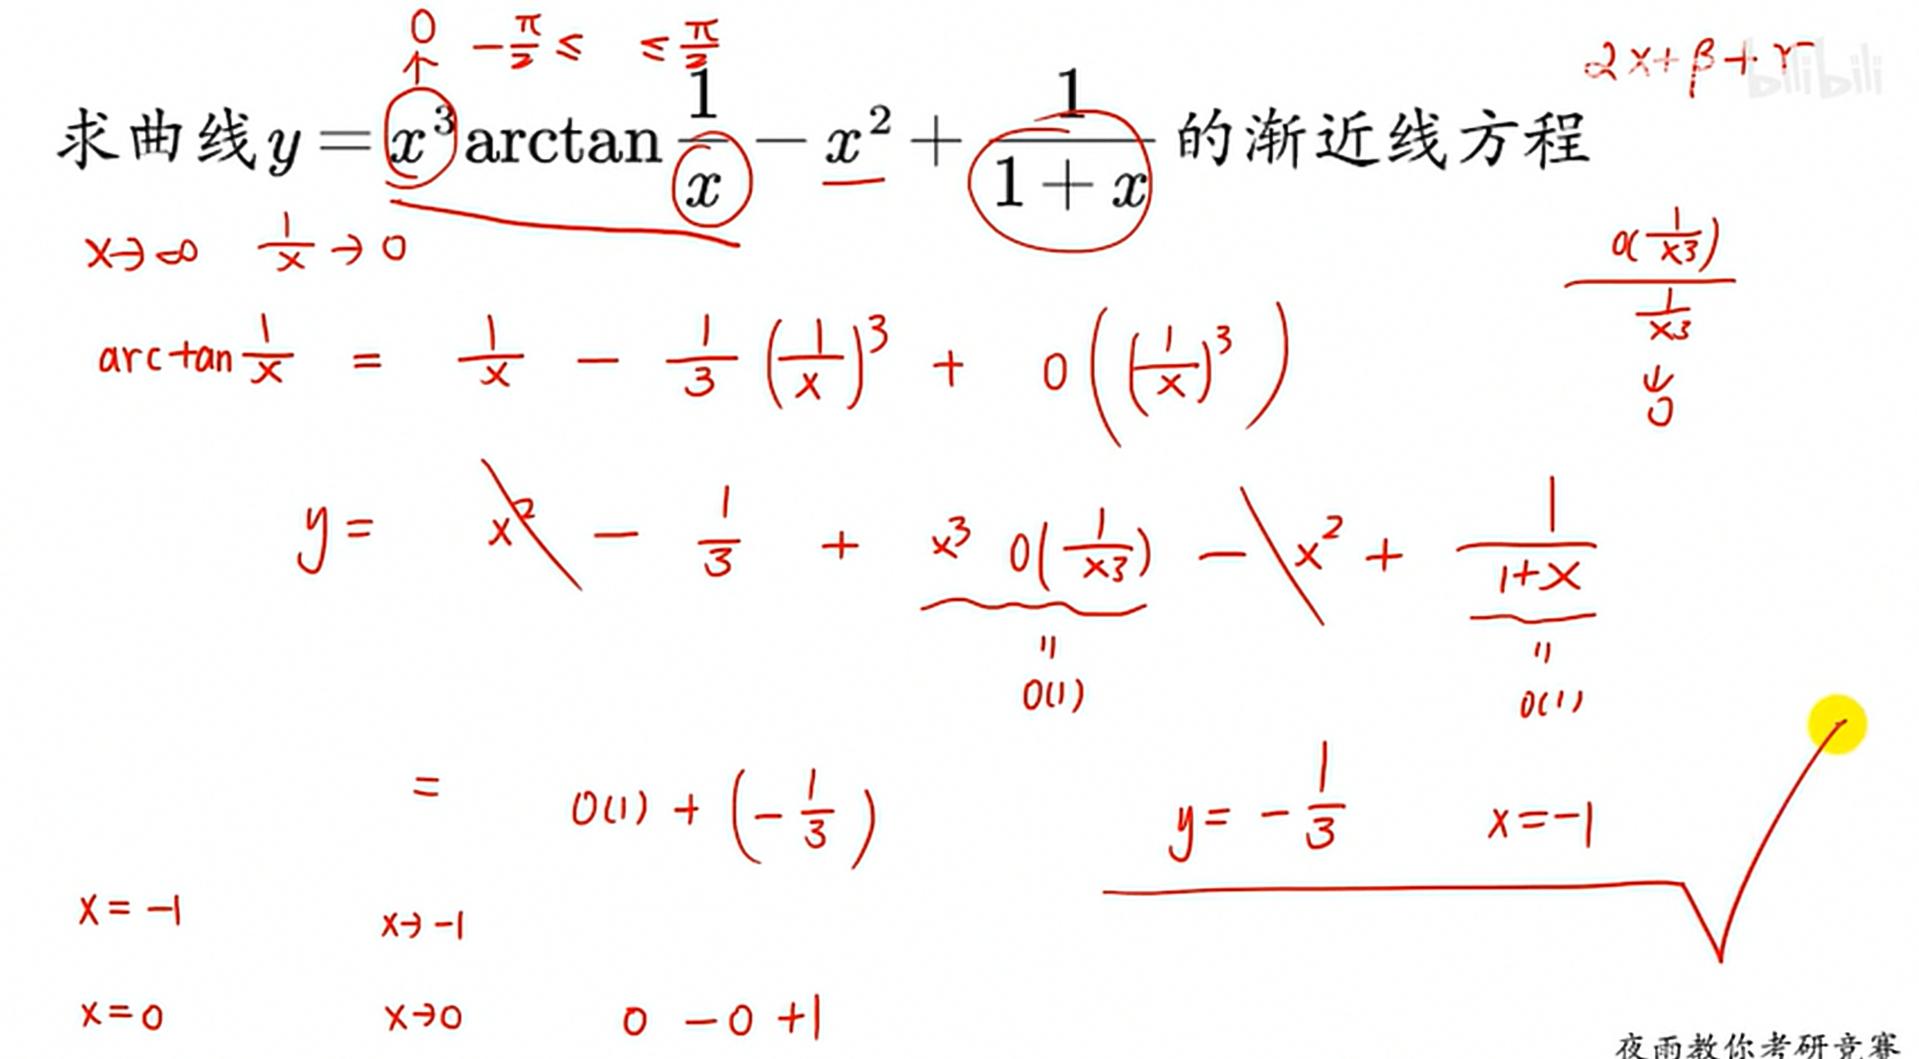 0 -π/2 ≤ ≤ π/2
2x+β+γ
bilibili
求曲线y=x³arctan 1/x - x² + 1/(1+x) 的渐近线方程
x→∞ 1/x → 0
o(1/x³)/(1/x³)
↓
0
arctan 1/x = 1/x - 1/3 (1/x)³ + o((1/x)³)
y= x² - 1/3 + x³ o(1/x³) - x² + 1/(1+x)
= o(1) = o(1)
= o(1) + (-1/3)
y= -1/3 x=-1
x=-1 x→-1
x=0 x→0 0 -0 +1
夜雨教你考研竞赛